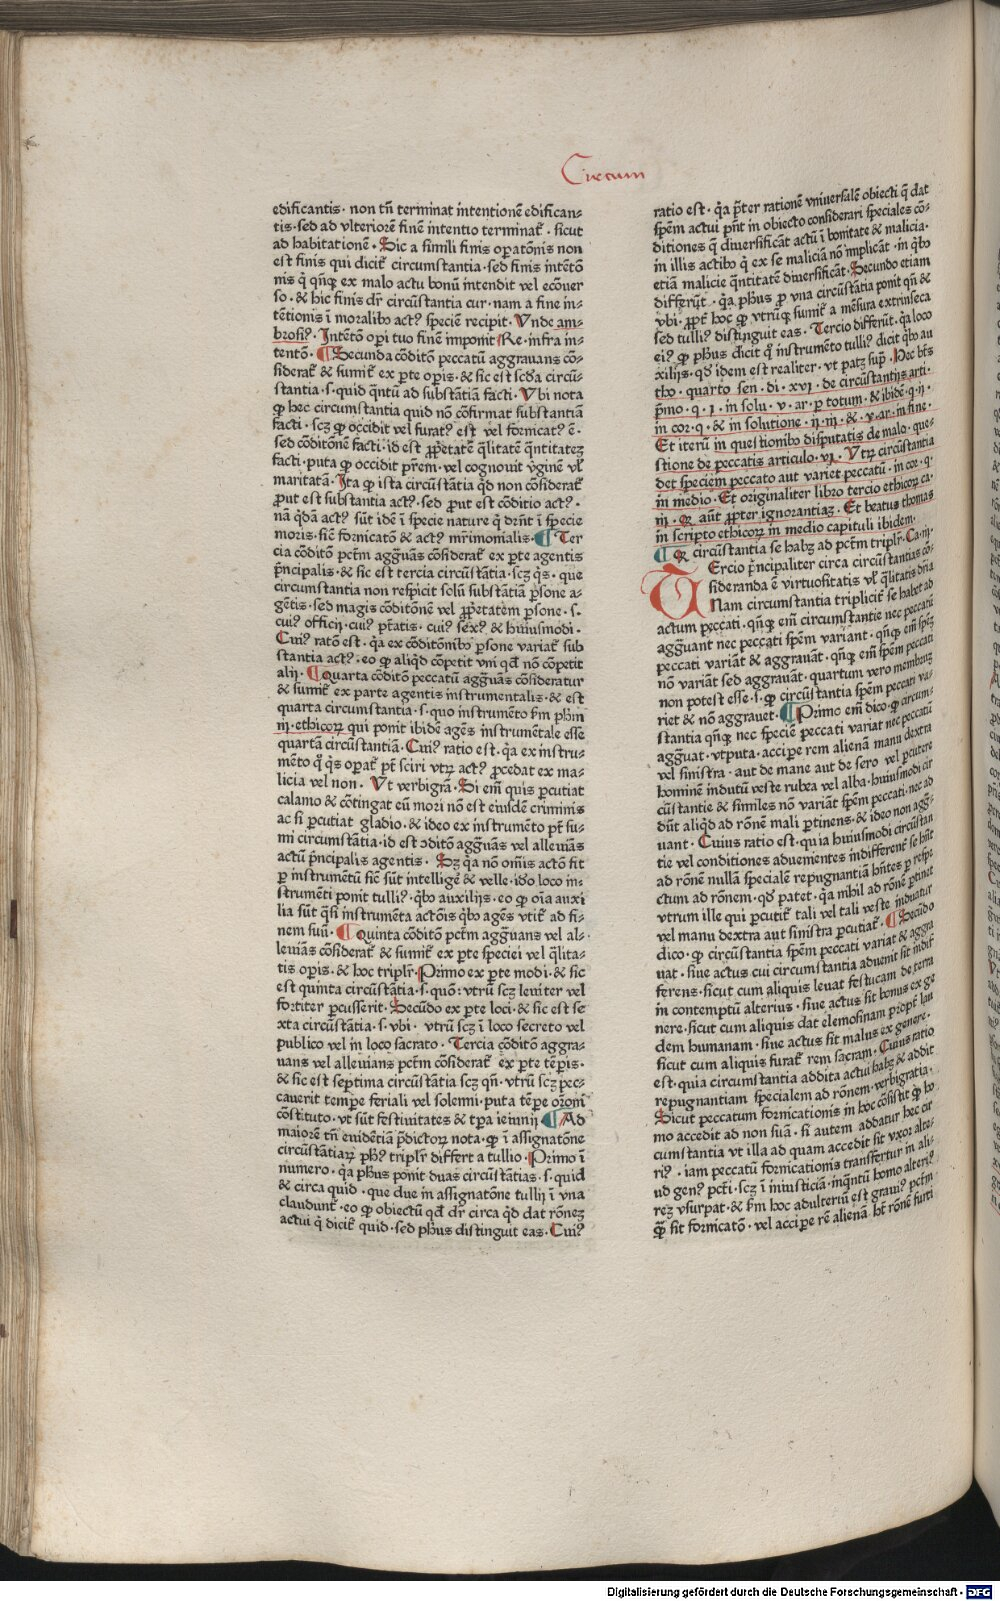 Circum
edificantis· non tn̄ terminat intentionē edifican-
tis· sed ad vlteriorē finē intentio terminat᷑· sicut
ad habitationē· Sic a simili finis oꝑatōnis non
est finis qui dicit᷑ circumstantia· sed finis intētō
nis q̇ qn̄qꝫ ex malo actu bonū intendit vel ecōuer
so· & hic finis dr̄ circūstantia cur· nam a fine in-
tētionis ī moralibꝰ actꝰ speciē recipit· Vnde am-
brosiꝰ· Intētō oꝑi tuo finē imponit Re· infra in-
tentō· ¶ Secunda cōditō peccatū aggrauans cō-
siderat᷑ & sumit᷑ ex ꝑte oꝑis· & sic est scd̄a circū-
stantia·s·quid qn̄tū ad substātiā facti· Vbi nota
ꝙ hec circumstantia quid nō cōfirmat substantiā
facti· scꝫ ꝙ occidit vel furatꝰ est vel fornicatꝰ ē·
sed cōditōnē facti· id est ꝓprietatē q̄litatē q̄ntitatē
facti· puta ꝙ occidit pr̄em· vel cognouit v̄ginē vl̓
maritatā· Ita ꝙ ista circūstātia qd̄ non cōsiderat᷑
ꝓut est substantia actꝰ· sed ꝓut est cōditio actꝰ·
nā qd̄a actꝰ sūt idē ī specie nature q̇ dr̄nt ī specie
moris· sic̄ fornicatō & actꝰ mr̄imonialis· ¶ Ter
cia cōditō pctm̄ aggͣuās cōsiderat᷑ ex ꝑte agentis
p̄ncipalis· & sic est tercia circūstātia·scꝫ q̇s· que
circumstantia non respicit solū substātiā ꝑsone a-
gētis· sed magis cōditōnē vel ꝓprietatēm ꝑsone·s·
cuiꝰ officij· cuiꝰ pt̄atis· cuiꝰ sexꝰ & huiusmodi·
Cuiꝰ ratō est· q̇a ex cōditōnibꝰ ꝑsone variat᷑ sub
stantia actꝰ· eo ꝙ aliqd̄ cōpetit vni qd̄ nō cōpetit
alij· ¶ Quarta cōditō peccatū aggͣuās cōsideratur
& sumit᷑ ex parte agentis instrumentalis· & est
quarta circumstantia·s·quo instrumēto km̄ phm̄
iij·ethicoꝝ qui ponit ibidē agēs instrumētale esse
quartā circūstantiā· Cuiꝰ ratio est· q̇a ex instru-
mēto q̊ q̇s oꝑat᷑ pt̄ sciri vtꝝ actꝰ ꝓcedat ex ma-
licia vel non· Vt verbigrā· Si em̄ quis ꝑcutiat
calamo & cōtingat eū mori nō est eiusdē criminis
ac si ꝑcutiat gladio· & ideo ex instrumēto pt̄ su-
mi circumstātia· id est ɔditō aggͣuās vel alleuiās
actū p̄ncipalis agentis· Sꝫ q̇a nō om̄is actō fit
ꝑ instrumētū sic̄ sūt intelligē & velle· id̓o loco in-
strumēti ponit tulliꝰ· qͥbꝰ auxilijs· eo ꝙ oīa auxi
lia sūt q̄si instrumēta actōis qͥbꝰ agēs vtit᷑ ad fi-
nem suū· ¶ Quinta cōditō pctm̄ aggͣuans vel al-
leuiās cōsiderat᷑ & sumit᷑ ex ꝑte speciei vel q̄lita-
tis oꝑis· & hoc triplr̄· Primo ex ꝑte modi· & sic
est quinta circūstātia·s·quō· vtrū scꝫ leuiter vel
fortiter ꝑcusserit· Secūdo ex ꝑte loci· & sic est se
xta circūstātia·s·vbi· vtrū scꝫ ī loco secreto vel
publico vel in loco sacrato· Tercia cōditō aggra-
uans vel alleuians pctm̄ cōsiderat᷑ ex ꝑte tēꝑis·
& sic est septima circūstātia scꝫ qn̄· vtrū scꝫ pec-
cauerit tempe feriali vel solenni· puta tēꝑe oroni
cōstituto· vt sūt festiuitates & tꝑa ieiunij ¶ Ad
maiorē tn̄ euidētiā p̄dictorꝫ nota· ꝙ ī assignatōne
circūstātiaꝝ phꝰ triplr̄ differt a tullio· Primo ī
numero· q̇a phus ponit duas circūstātias·s·quid
& circa quid· que due in assignatōne tullij ī vna
claudunt᷑· eo ꝙ obiectū qd̄ dr̄ circa qd̄ dat rōneꝫ
actui q̇ dicit᷑ quid· sed phus distinguit eas· Cuiꝰ
ratio est· q̇a p̄ter rationē vniuersalē obiecti q̄ dat
spēm actui pn̄t in obiecto considerari speciales cō-
ditiones q̄ diuersificāt actū ī bonitate & malicia·
in illis actibꝰ q̇ ex se maliciā nō implicāt· in qͥbꝰ
etiā malicie q̄ntitatē diuersificāt· Secundo etiam
differūt· q̇a phus ꝓ vna circūstātia ponit qn̄ &
vbi· ꝓpt̄ hoc ꝙ vtrūqꝫ sumit᷑ a mēsura extrinseca
sed tulliꝰ distinguit eas· Tercio differūt· q̇a loco
eiꝰ ꝙ phus dicit q̊ instrumēto tulliꝰ dicit qͥbꝰ au
xilijs· qd̄ idem est realiter· vt patꝫ supͣ· Hec bt̄s
tho· quarto sen· di· xvi· de circūstantijs arti·
p̄mo· q· i· in solu· v· ar· ꝑ totum· & ibidē· q· ij·
in cor· q· & in solutione· ij·iij· & v· ar· in fine·
Et iterū in questionibꝰ disputatis de malo· que-
stione de peccatis articulo· vi· Vtꝝ circūstantia
det speciem peccato aut variet peccatū· in cor· q·
in medio· Et originaliter libro tercio ethicoꝝ ca·
iij· Qꝝ aūt ꝓpter ignorantiaꝫ· Et beatus thomas
in scripto ethicoꝝ in medio capituli ibidem·
¶ Qꝝ circūstantia se habꝫ ad pctm̄ triplr̄· Ca·iij·
Tercio p̄ncipaliter circa circūstantias cō-
sideranda ē virtuositatis vl̓ q̄litatis dr̄ia
Nam circumstantia triplicit᷑ se habet ad
actum peccati· qn̄qꝫ em̄ circumstantie nec peccatū
aggͣuant nec peccati spēm variant· qn̄qꝫ em̄ spēꝫ
peccati variāt & aggrauāt· qn̄qꝫ em̄ spēm peccati
nō variāt sed aggrauāt· quartum vero membruꝫ
non potest esse·s·ꝙ circūstantia spēm peccati va-
riet & nō aggrauet· ¶ Primo em̄ dico· ꝙ circum-
stantia qn̄qꝫ nec speciē peccati variat nec peccatū
aggͣuat· vtputa· accipere rem alienā manu dextra
vel sinistra· aut de mane aut de sero vel ꝑcutere
hominē indutū veste rubea vel alba· huiusmodi cir
cūstantie & similes nō variāt spēm peccati· nec ad
dūt aliqd̄ ad rōnē mali ꝑtinens· & ideo non aggͣ-
uant· Cuius ratio est· quia huiusmodi circūstan
tie vel conditiones aduenientes indifferent᷑ se hn̄t
ad rōnē nullā specialē repugnantiā hn̄tes ꝑ respe
ctum ad rōnem· qd̓ patet· q̇a nihil ad rōnē ꝑtinet
vtrum ille qui ꝑcutit᷑ tali vel tali veste induatur
vel manu dextra aut sinistra ꝑcutiat᷑· ¶ Secūdo
dico· ꝙ circūstantia spēm peccati variat & aggra
uat· siue actus cui circumstantia aduenit sit indif
ferens· sicut cum aliquis leuat festucam de terra
in contemptū alterius· siue actus sit bonus ex ge
nere· sicut cum aliquis dat elemosinam propt̄ lau
dem humanam· siue actus sit malus ex genere·
sicut cum aliquis furat᷑ rem sacram· Cuius ratio
est· quia circumstantia addita actui habꝫ & addit
repugnantiam specialem ad rōnem· verbigratia·
Sicut peccatum fornicationis in hoc cōsistit ꝙ ho
mo accedit ad non suā· si autem addatur hec cir
cumstantia vt illa ad quam accedit sit vxor alte-
riꝰ· iam peccatū fornicationis transfertur in ali-
ud genꝰ pcti· scꝫ ī iniusticiā· inq̄ntū homo alteriꝰ
reꝫ vsurpat· & km̄ hoc adulteriū est grauiꝰ pctm̄
qͣꝫ sit fornicatō· vel accipe rē alienā hꝫ rōnē furti
Digitalisierung gefördert durch die Deutsche Forschungsgemeinschaft - DFG